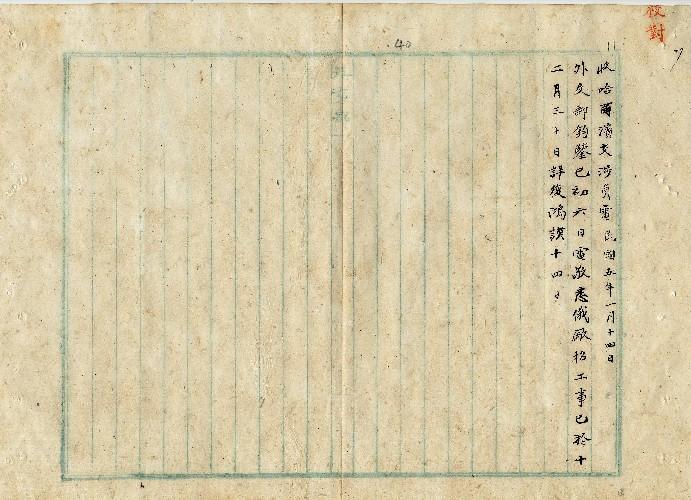 校對
40
收哈爾濱交涉員電 民國五年一月十四日
外交部鈞鑒巳初六日電敬悉俄廠招工事已於十
二月三十日詳復鴻謨十四日